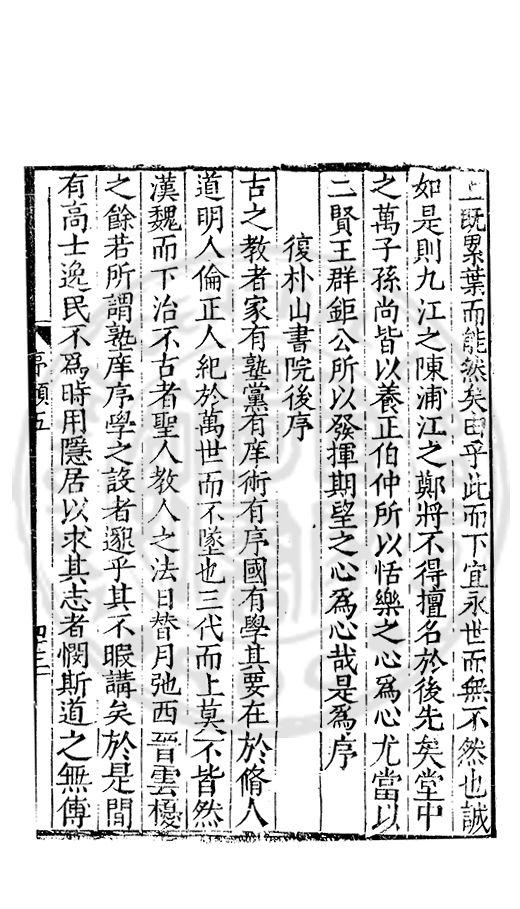 上既累葉而能然矣由乎此而下宜永世而無不然也誠
如是則九江之陳浦江之鄭將不得擅名於後先矣堂中
之萬子孫尚皆以養正伯仲所以恬樂之心為心尤當以
二賢王群鉅公所以發揮期望之心為心哉是為序
復朴山書院後序
古之教者家有塾黨有庠術有序國有學其要在於脩人
道明人倫正人紀於萬世而不墜也三代而上莫不皆然
漢魏而下治不古者聖人教人之法日替月弛西晉雲擾
之餘若所謂塾庠序學之設者邈乎其不暇講矣於是間
有高士逸民不為時用隱居以求其志者憫斯道之無傳
序類五